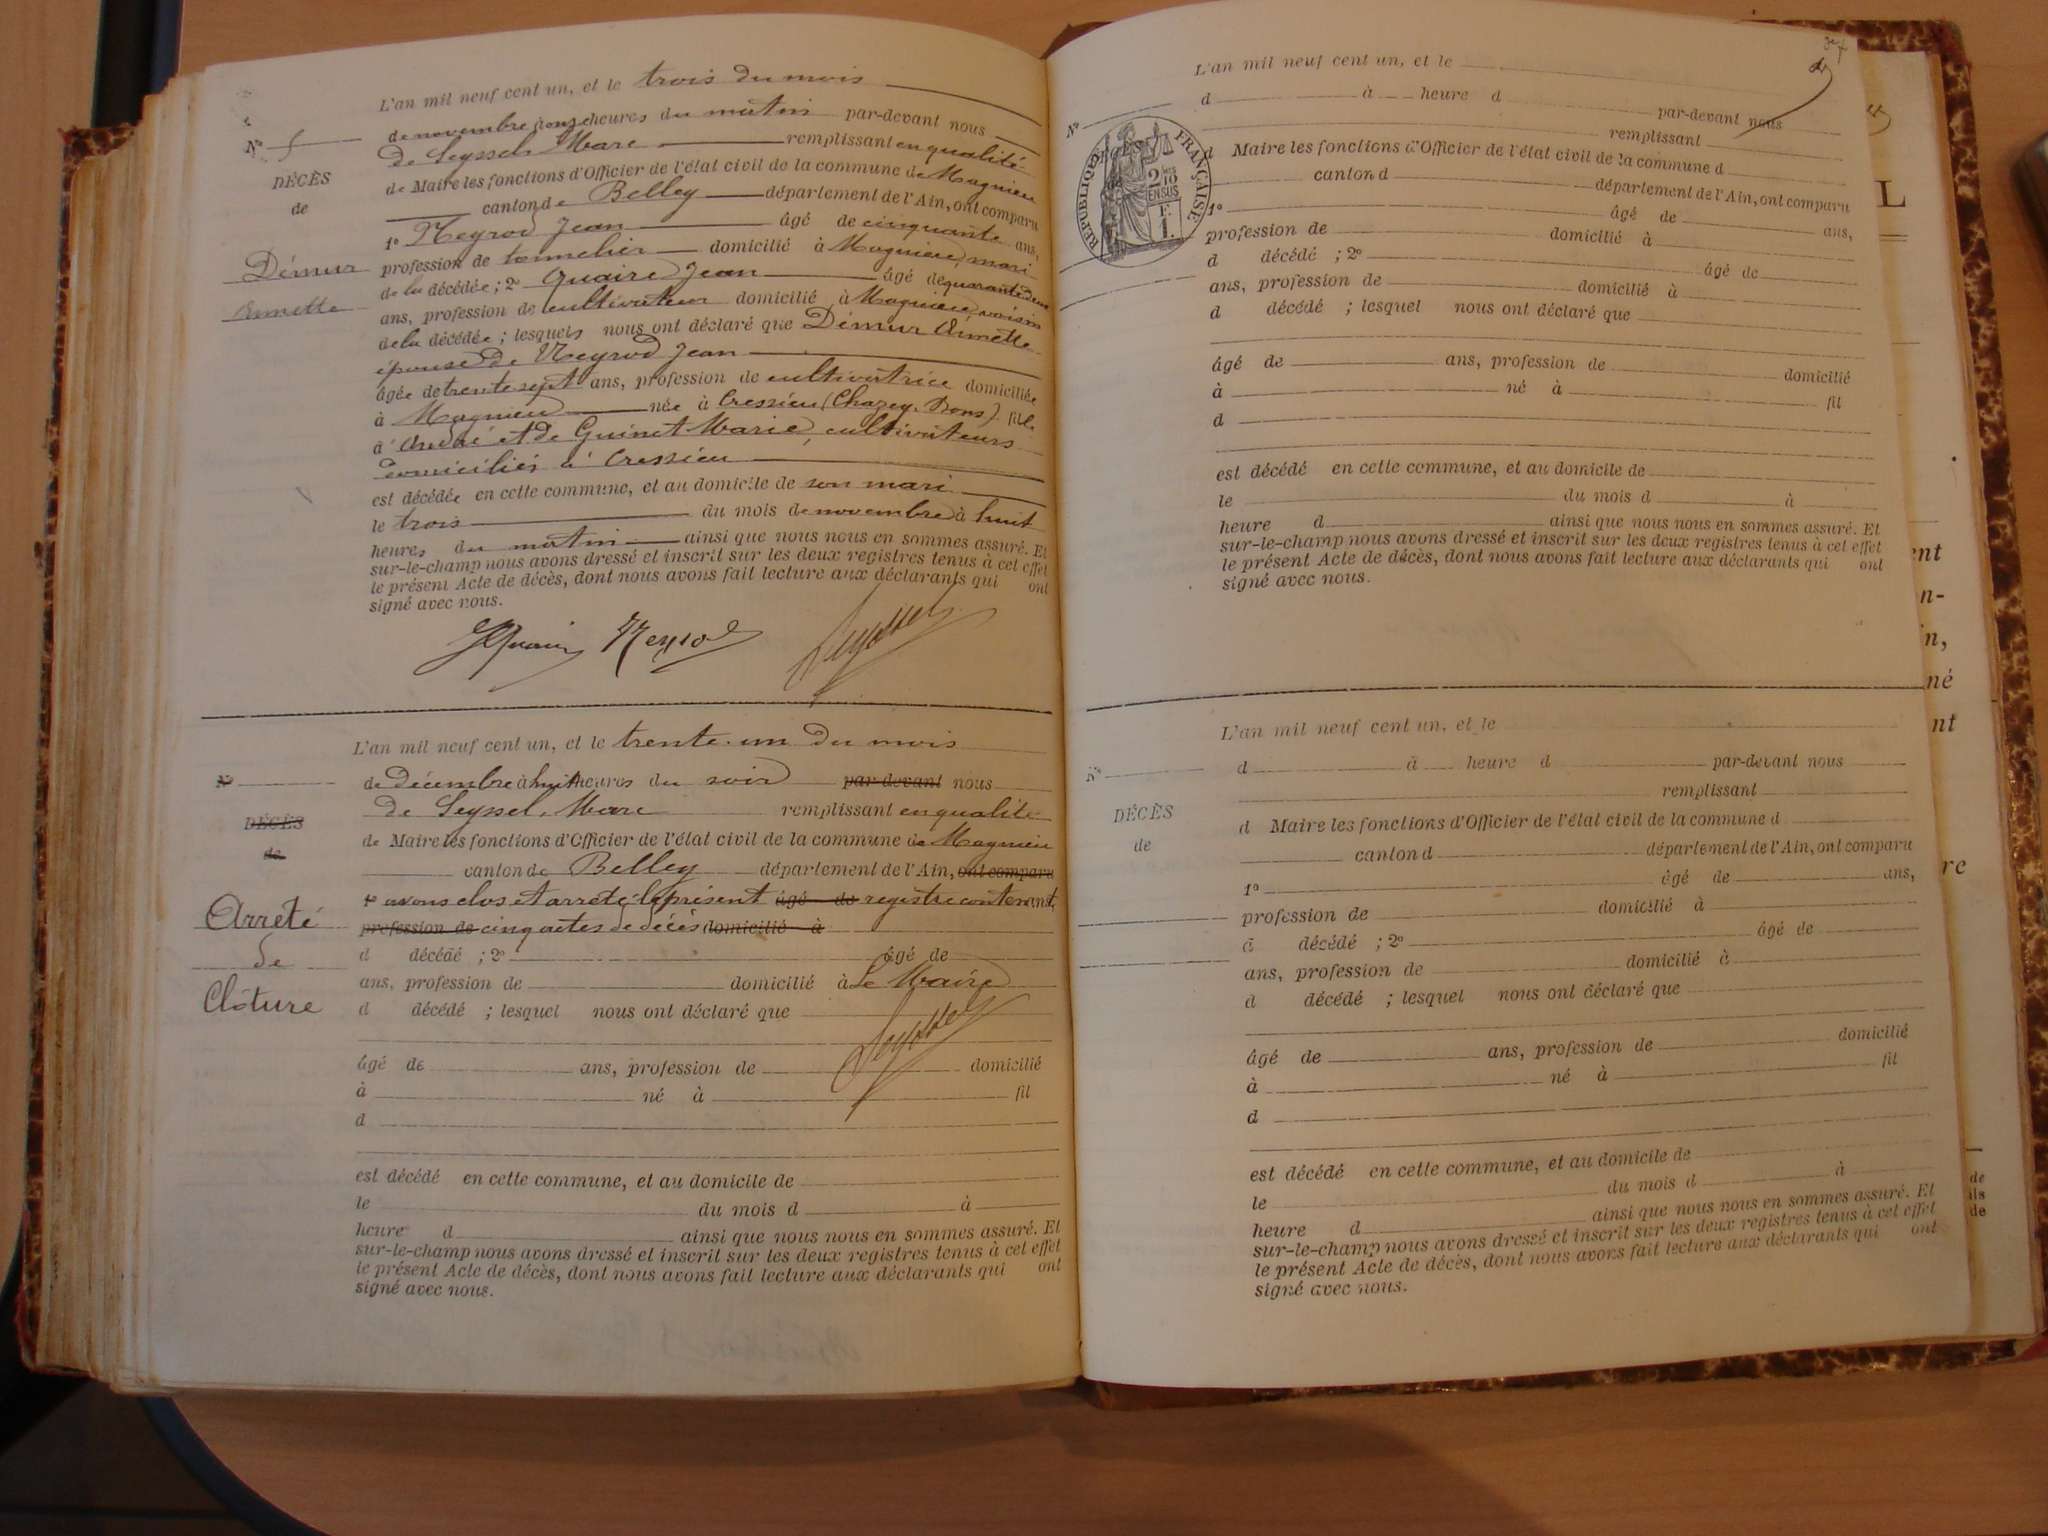 L'an mil neuf cent un, et le trois du mois
de novembre à onze heures du matin par-devant nous
de Seyssel Marc remplissant en qualité
de Maire les fonctions d'Officier de l'état civil de la commune de Magnieu
canton de Belley département de l'Ain, ont comparu
1º Neyrod Jean âgé de cinquante ans,
profession de tonnelier domicilié à Magnieu, mari
de la décédée ; 2º Quaire Jean âgé de quarante deux
ans, profession de cultivateur domicilié à Magnieu, voisin
de la décédée ; lesquels nous ont déclaré que Démur Annette
épouse de Neyrod Jean
âgée de trente sept ans, profession de cultivatrice domiciliée
à Magnieu née à Cressieu (Chazey-Bons) fille
d'André et de Guinet Marie, cultivateurs
domiciliés à Cressieu
est décédée en cette commune, et au domicile de son mari
le trois du mois de novembre à huit
heures du matin ainsi que nous nous en sommes assuré. Et
sur-le-champ nous avons dressé et inscrit sur les deux registres tenus à cet effet
le présent Acte de décès, dont nous avons fait lecture aux déclarants qui ont
signé avec nous.
Nº 5
DÉCÈS
de
Démur
Annette
JQuaire Neyrod Seyssel
L'an mil neuf cent un, et le trente-un du mois
de Décembre à huit heures du soir par-devant nous
de Seyssel, Marc remplissant en qualité
de Maire les fonctions d'Officier de l'état civil de la commune de Magnieu
canton de Belley département de l'Ain, ont comparu
1º avons clos et arrêté le présent âgé de registre contenant
profession de cinq actes de décès domicilié à
d décédé ; 2º âgé de
ans, profession de domicilié à Le Maire
d décédé ; lesquel nous ont déclaré que
Seyssel
âgé de ans, profession de domicilié
à né à fil
d
est décédé en cette commune, et au domicile de
le du mois d à
heure d ainsi que nous nous en sommes assuré. Et
sur-le-champ nous avons dressé et inscrit sur les deux registres tenus à cet effet
le présent Acte de décès, dont nous avons fait lecture aux déclarants qui ont
signé avec nous.
Nº
DÉCÈS
de
Arrêté
de
Clôture
L'an mil neuf cent un, et le
d à heure d par-devant nous
remplissant
d Maire les fonctions d'Officier de l'état civil de la commune d
canton d département de l'Ain, ont comparu
1º âgé de ans,
profession de domicilié à
d décédé ; 2º âgé de
ans, profession de domicilié à
d décédé ; lesquel nous ont déclaré que
âgé de ans, profession de domicilié
à né à fil
d
est décédé en cette commune, et au domicile de
le du mois d à
heure d ainsi que nous nous en sommes assuré. Et
sur-le-champ nous avons dressé et inscrit sur les deux registres tenus à cet effet
le présent Acte de décès, dont nous avons fait lecture aux déclarants qui ont
signé avec nous.
Nº
RÉPUBLIQUE FRANÇAISE
2 10
EN SUS
L'an mil neuf cent un, et le
d à heure d par-devant nous
remplissant
d Maire les fonctions d'Officier de l'état civil de la commune d
canton d département de l'Ain, ont comparu
1º âgé de ans,
profession de domicilié à
d décédé ; 2º âgé de
ans, profession de domicilié à
d décédé ; lesquel nous ont déclaré que
âgé de ans, profession de domicilié
à né à fil
d
est décédé en cette commune, et au domicile de
le du mois d à
heure d ainsi que nous nous en sommes assuré. Et
sur-le-champ nous avons dressé et inscrit sur les deux registres tenus à cet effet
le présent Acte de décès, dont nous avons fait lecture aux déclarants qui ont
signé avec nous.
Nº
DÉCÈS
de
L
ent
n-
in,
né
nt
re
de
ils
de